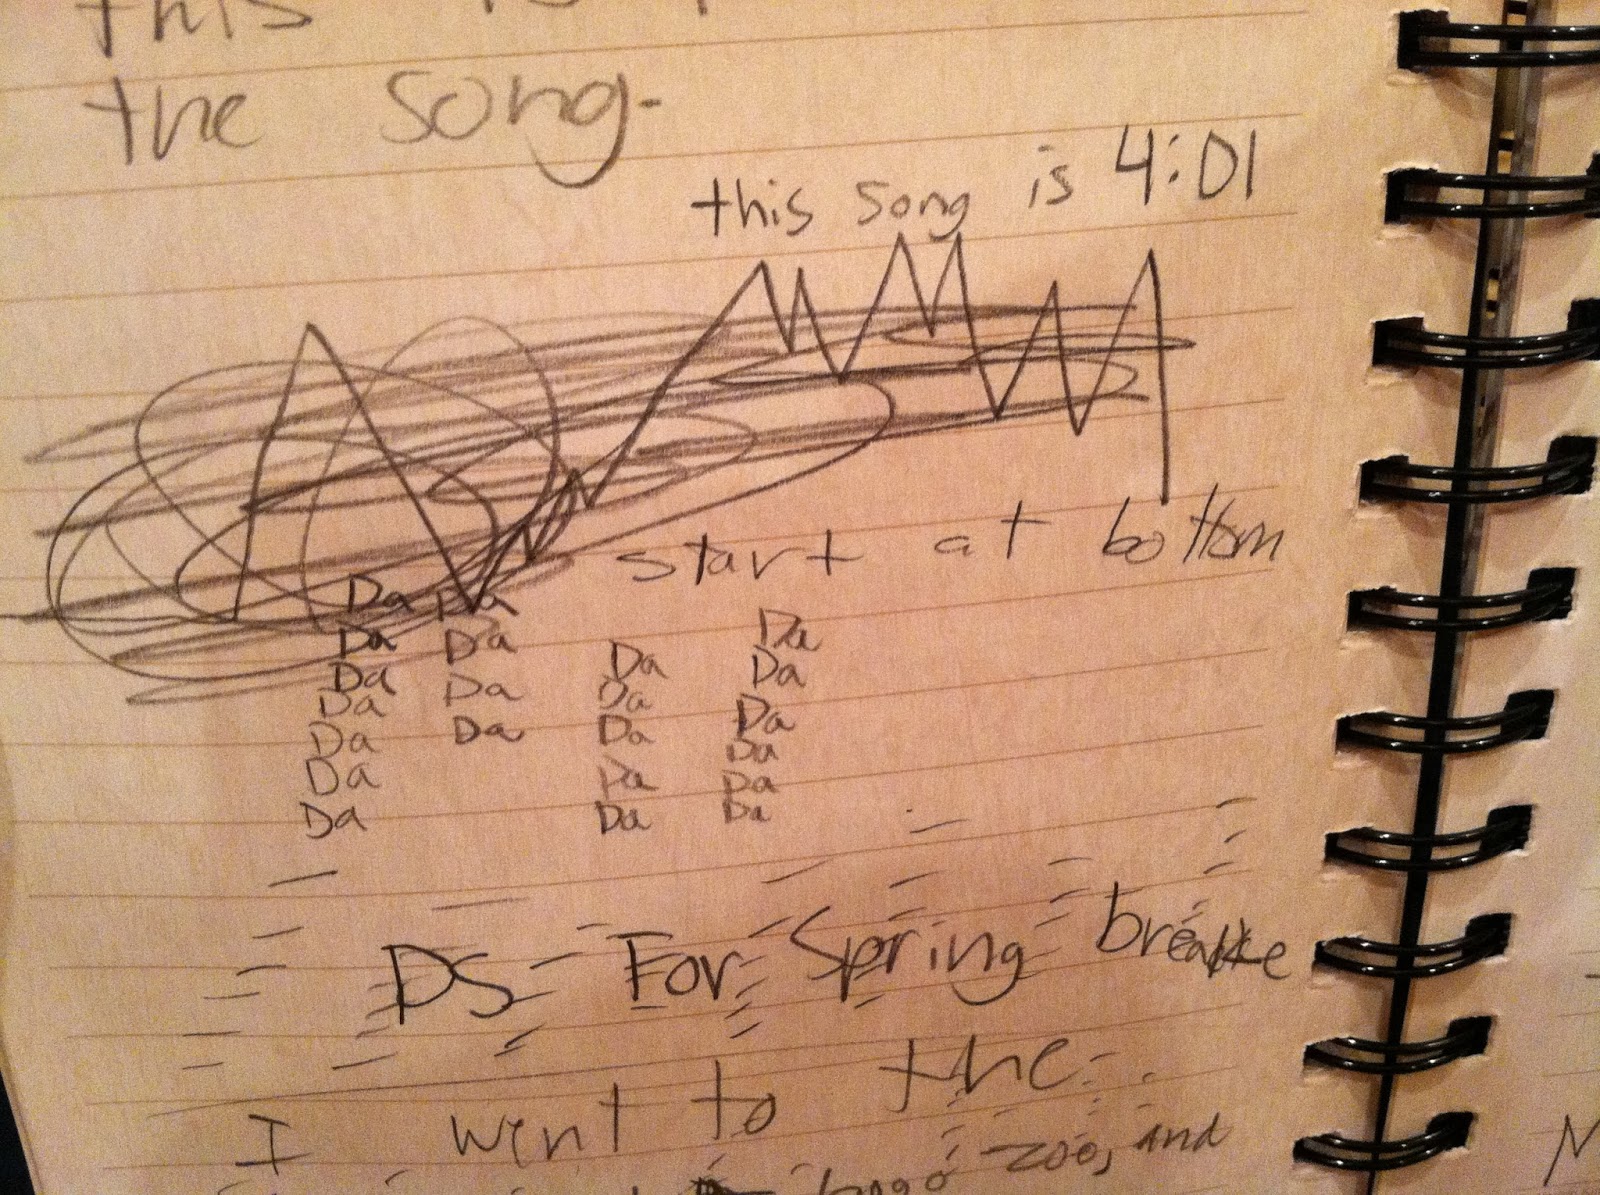 this is
the song.
this song is 4:01
start at bottom
Da Da Da
Da Da Da Da
Da Da Da Da
Da Da Da Da
Da Da Da
Da Da Da
Da
DS For Spring breake
I went to the
zoo, and